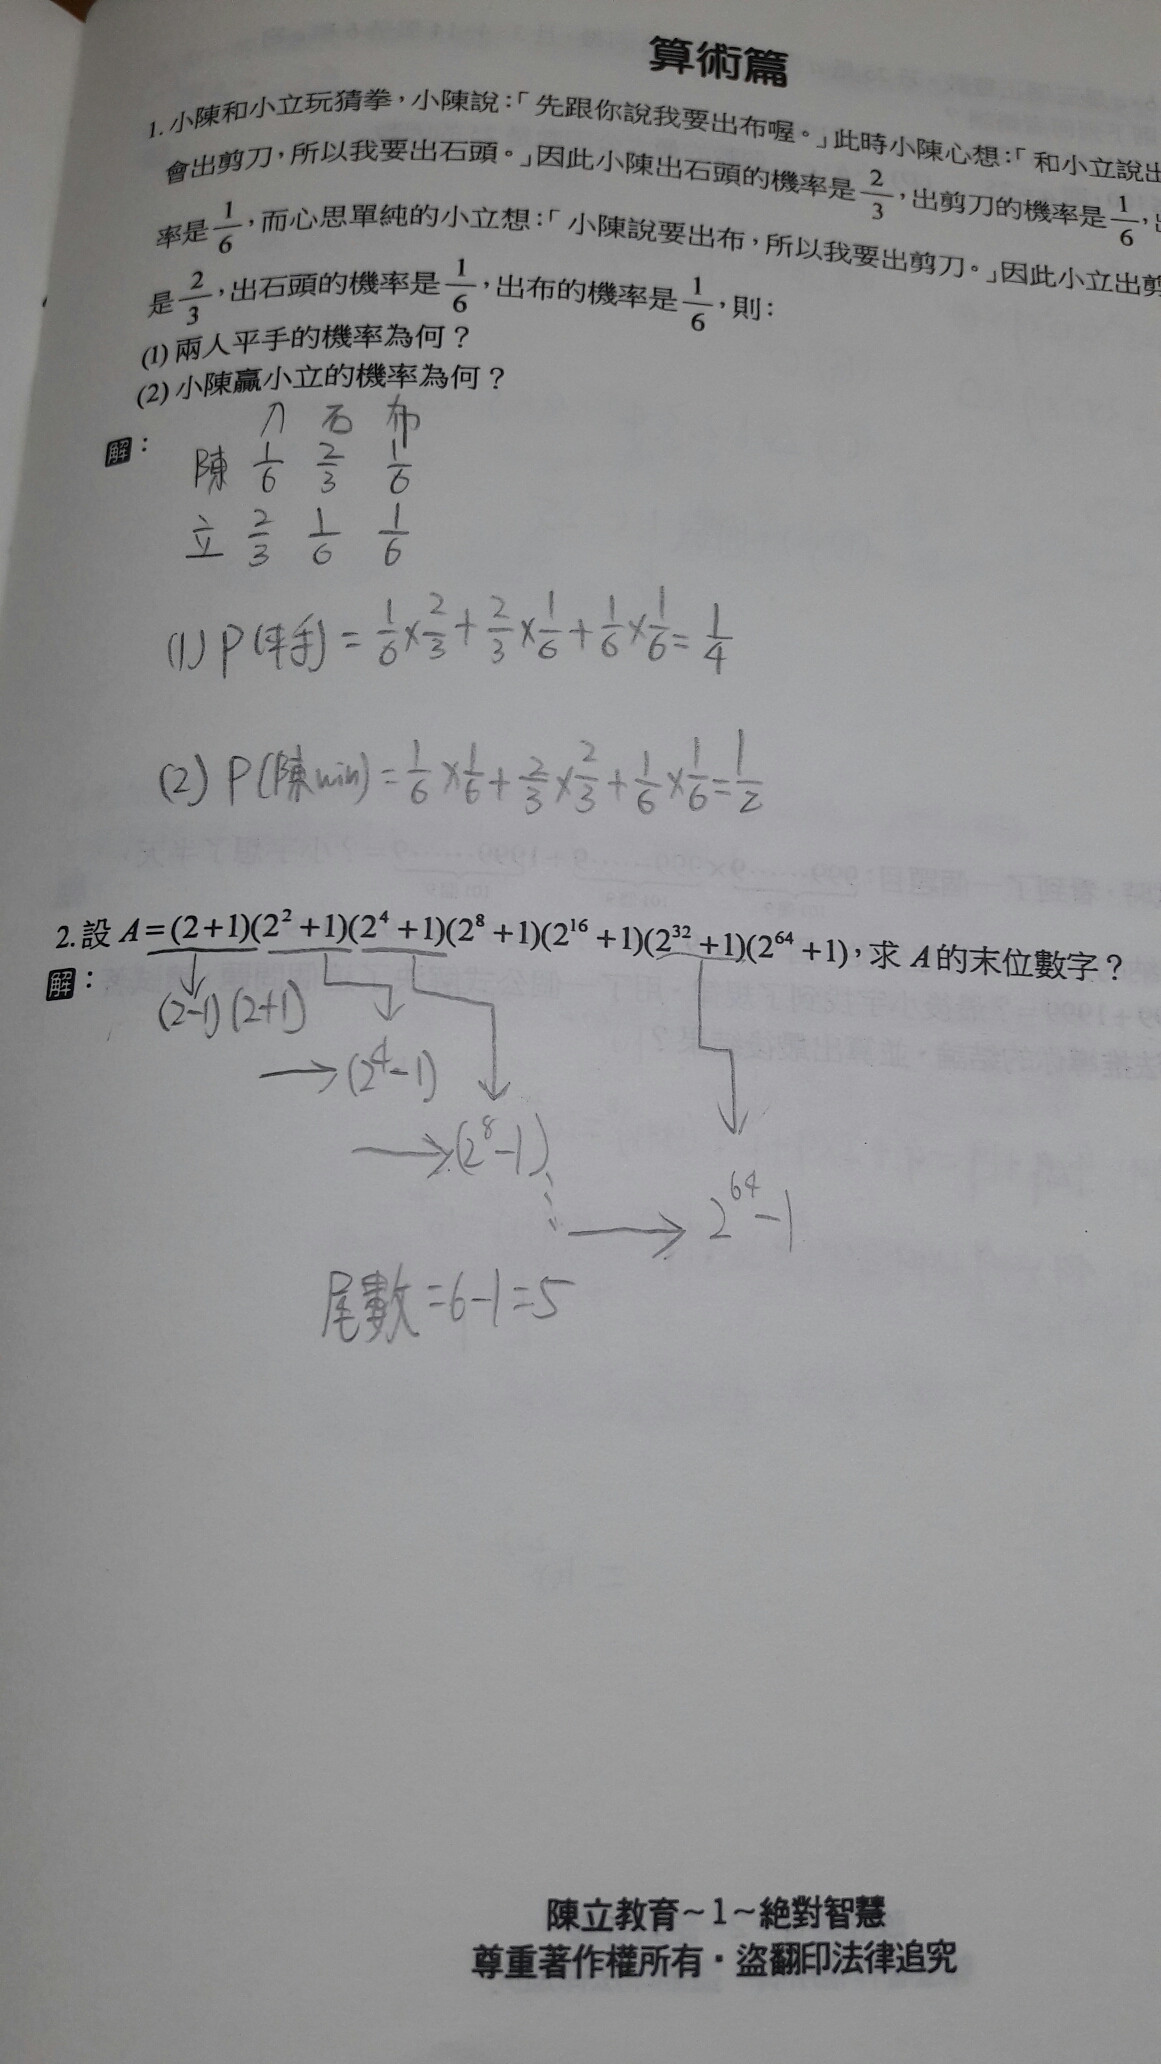 算術篇
1. 小陳和小立玩猜拳,小陳說:「先跟你說我要出布喔。」此時小陳心想:「和小立說出
會出剪刀,所以我要出石頭。」因此小陳出石頭的機率是 2/3,出剪刀的機率是 1/6,
率是 1/6,而心思單純的小立想:「小陳說要出布,所以我要出剪刀。」因此小立出剪
是 2/3,出石頭的機率是 1/6,出布的機率是 1/6,則:
(1) 兩人平手的機率為何?
(2) 小陳贏小立的機率為何?
解:
刀 石 布
陳 1/6 2/3 1/6
立 2/3 1/6 1/6
(1) P(平手) = 1/6 × 2/3 + 2/3 × 1/6 + 1/6 × 1/6 = 1/4
(2) P(陳win) = 1/6 × 1/6 + 2/3 × 2/3 + 1/6 × 1/6 = 1/2
2. 設 A=(2+1)(2²+1)(2⁴+1)(2⁸+1)(2¹⁶+1)(2³²+1)(2⁶⁴+1),求 A 的末位數字?
解:
(2-1)(2+1)
→(2⁴-1)
→(2⁸-1)
→ 2⁶⁴-1
尾數=6-1=5
陳立教育~1~絕對智慧
尊重著作權所有·盜翻印法律追究